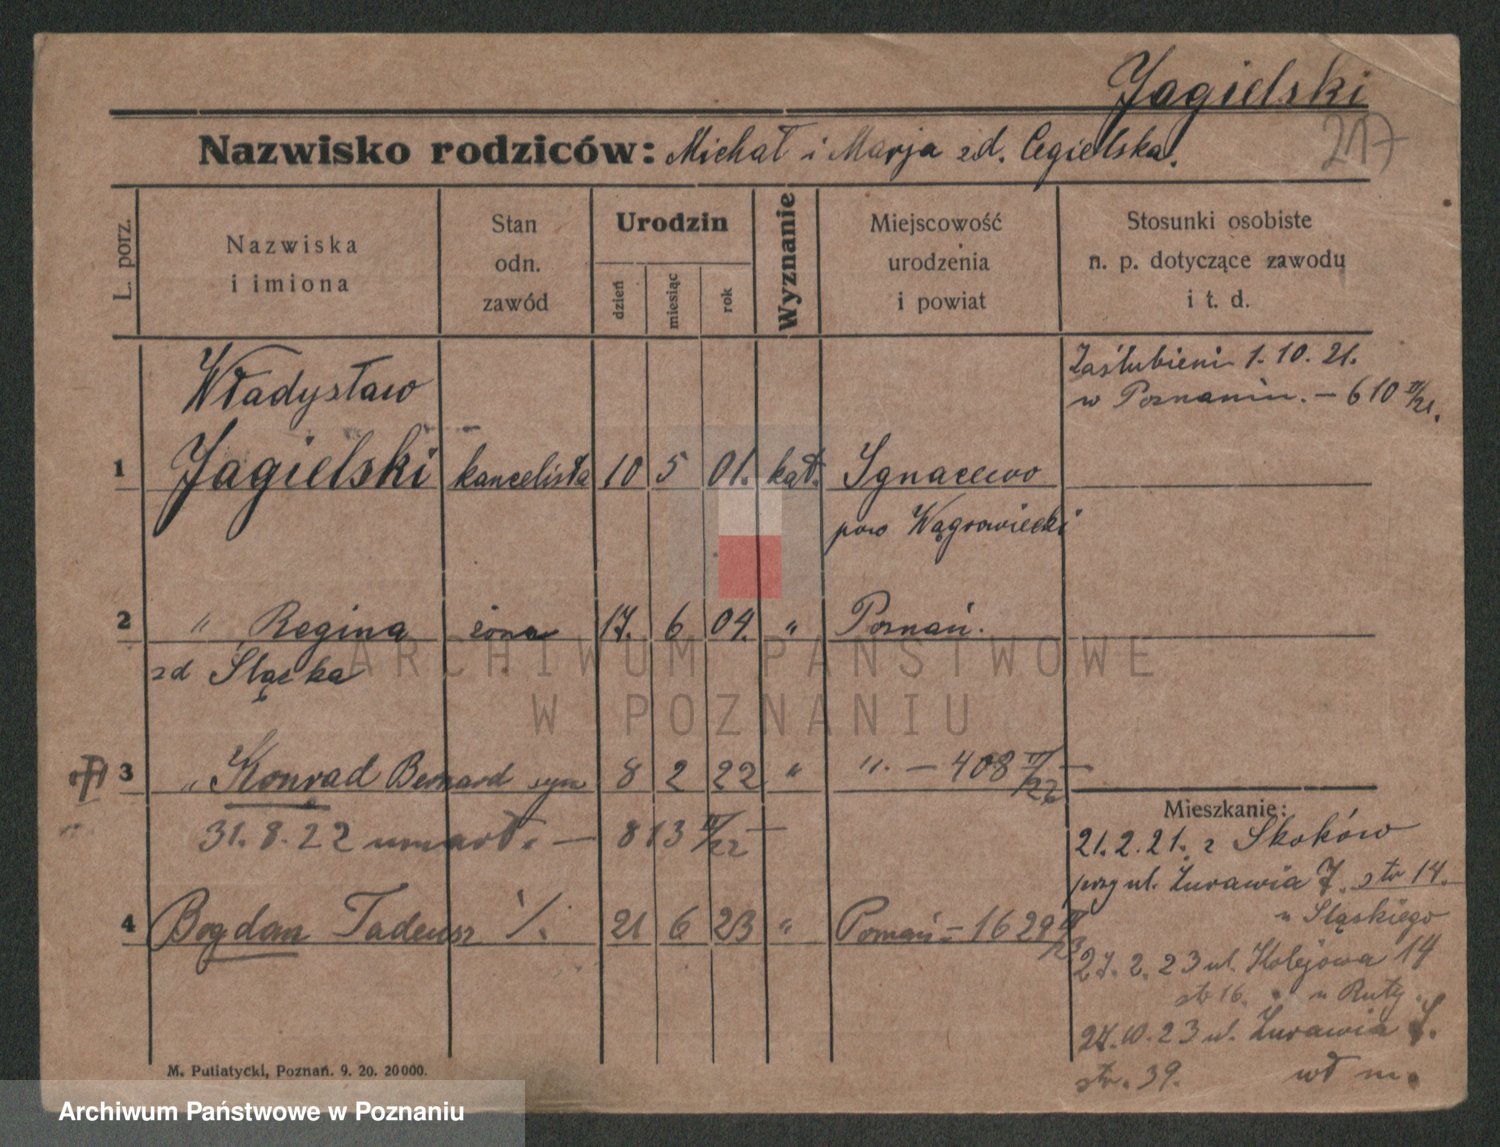 Jagielski
217
Nazwisko rodziców: Michał i Marja zd. Cegielska.
L. porz.
Nazwiska
i imiona
Stan
odn.
zawód
Urodzin
dzień
miesiąc
rok
Wyznanie
Miejscowość
urodzenia
i powiat
Stosunki osobiste
n. p. dotyczące zawodu
i t. d.
Zaślubieni 1. 10. 21.
w Poznaniu. — 610 II/21.
Władysław
1 Jagielski kancelista 10 5 01. kat. Ignacewo
pow Wągrowiecki
2 " Regina żona 17. 6 04. " Poznań.
zd Śląska
3 " Konrad Bernard syn 8 2 22 " ". — 408 II/22 —
31. 8. 22 umarł. — 813 II/22 —
4 Bogdan Tadeusz ./. 21 6 23 " Poznań — 1629 II/23
Mieszkanie:
21. 2. 21. z Skoków
przy ul. Żurawia 7. str 14.
u Śląskiego
27. 2. 23 ul. Kolejowa 14
str 16. u Ruty.
27. 10. 23 ul. Żurawia 7.
str. 39. wł m.
M. Putiatycki, Poznań. 9. 20. 20000.
ARCHIWUM PAŃSTWOWE
W POZNANIU
Archiwum Państwowe w Poznaniu